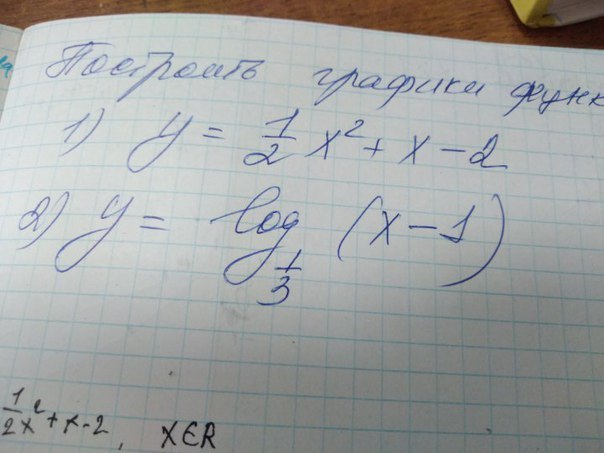 Построить графики функ
1) y = 1/2 x² + x - 2
2) y = log_1/3 (x - 1)
1/2 x² + x - 2, x∈R